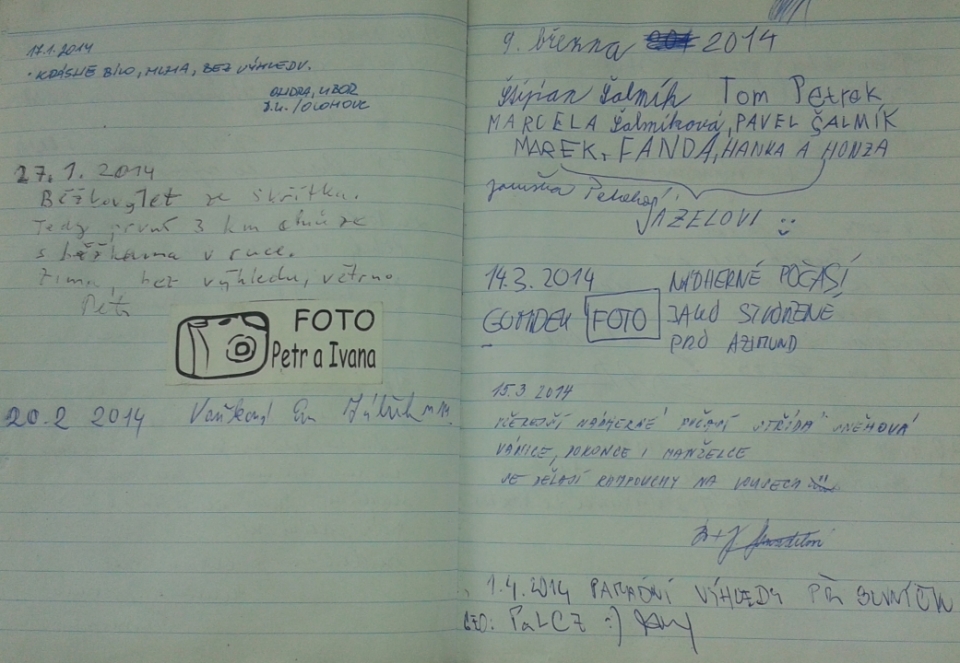 17.1.2014
• KRÁSNE BÍLO, MLHA, BEZ VÝHLEDU.
ONDRA, LIBOR
/OLOMOUC
27.1.2014
Běžkovylet ze Skřítku.
Tedy první 3 km chůze
s běžkama v ruce.
Zima, bez výhledu, větrno.
Petr
FOTO
Petr a Ivana
20.2 2014
9. března 2014
Štěpán Šalmík Tom Petrak
MARCELA Šalmíková, PAVEL ŠALMÍK
MAREK, FANDA, HANKA A HONZA
14.3.2014 NÁDHERNÉ POČASÍ
FOTO JAKO STVOŘENÉ
PRO AZIMUND
15.3 2014
VČEREJŠÍ NÁDHERNÉ POČASÍ STŘÍDÁ SNĚHOVÁ
VÁNICE, DOKONCE I MANŽELCE
SE DĚLAJÍ RAMPOUCHY NA VOUSECH
1.4.2014 PARÁDNÍ VÝHLEDY PŘI
PaLCZ :)